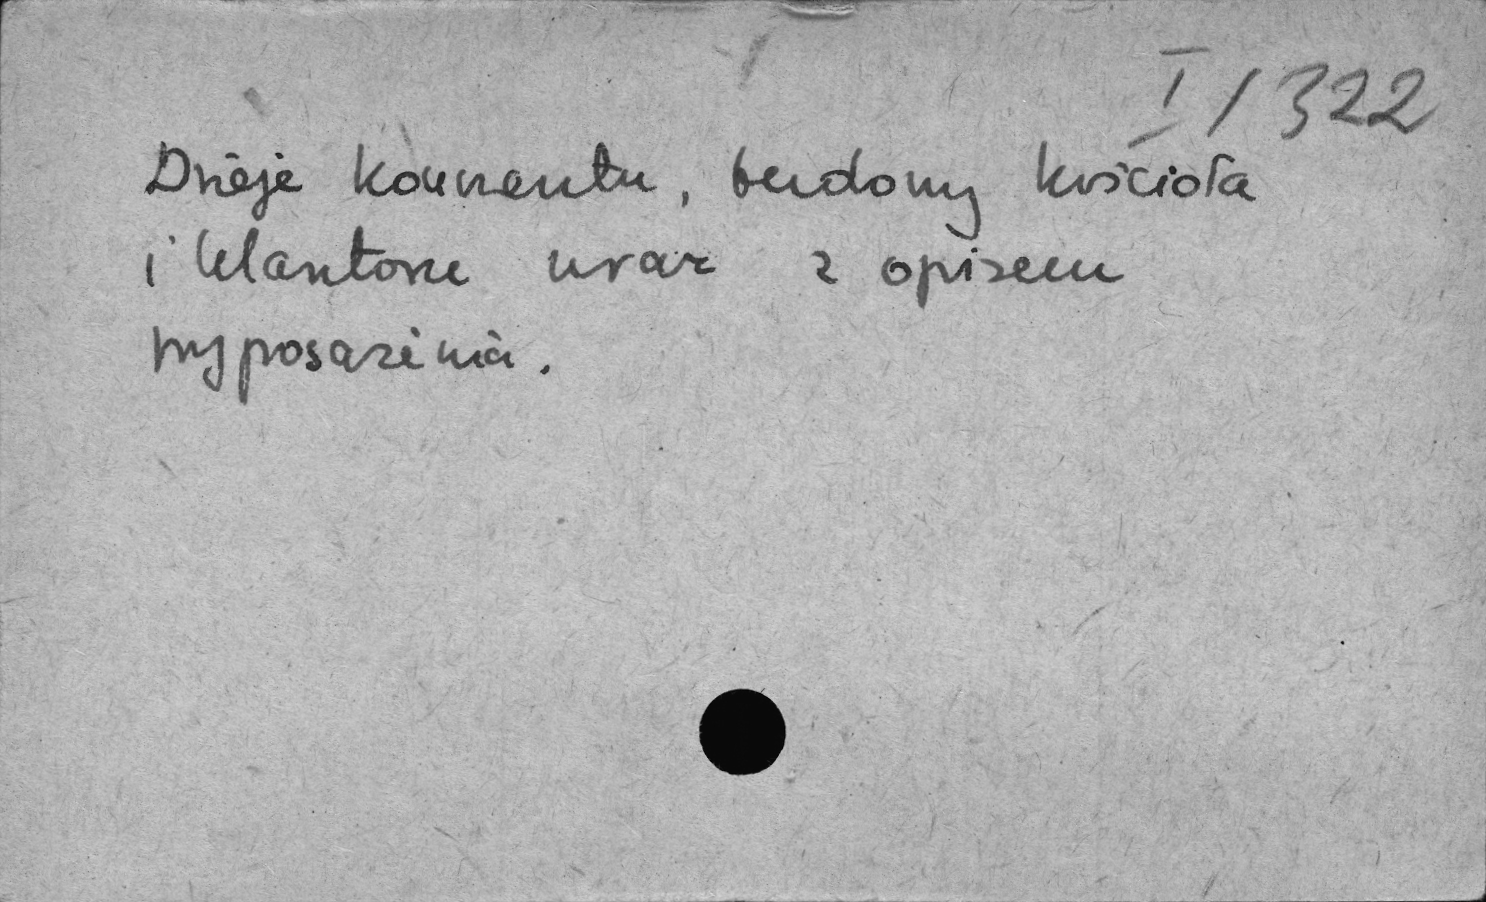 I/322
Dzieje konwentu, budowy kościoła
i klasztoru wraz z opisem
wyposażenia.